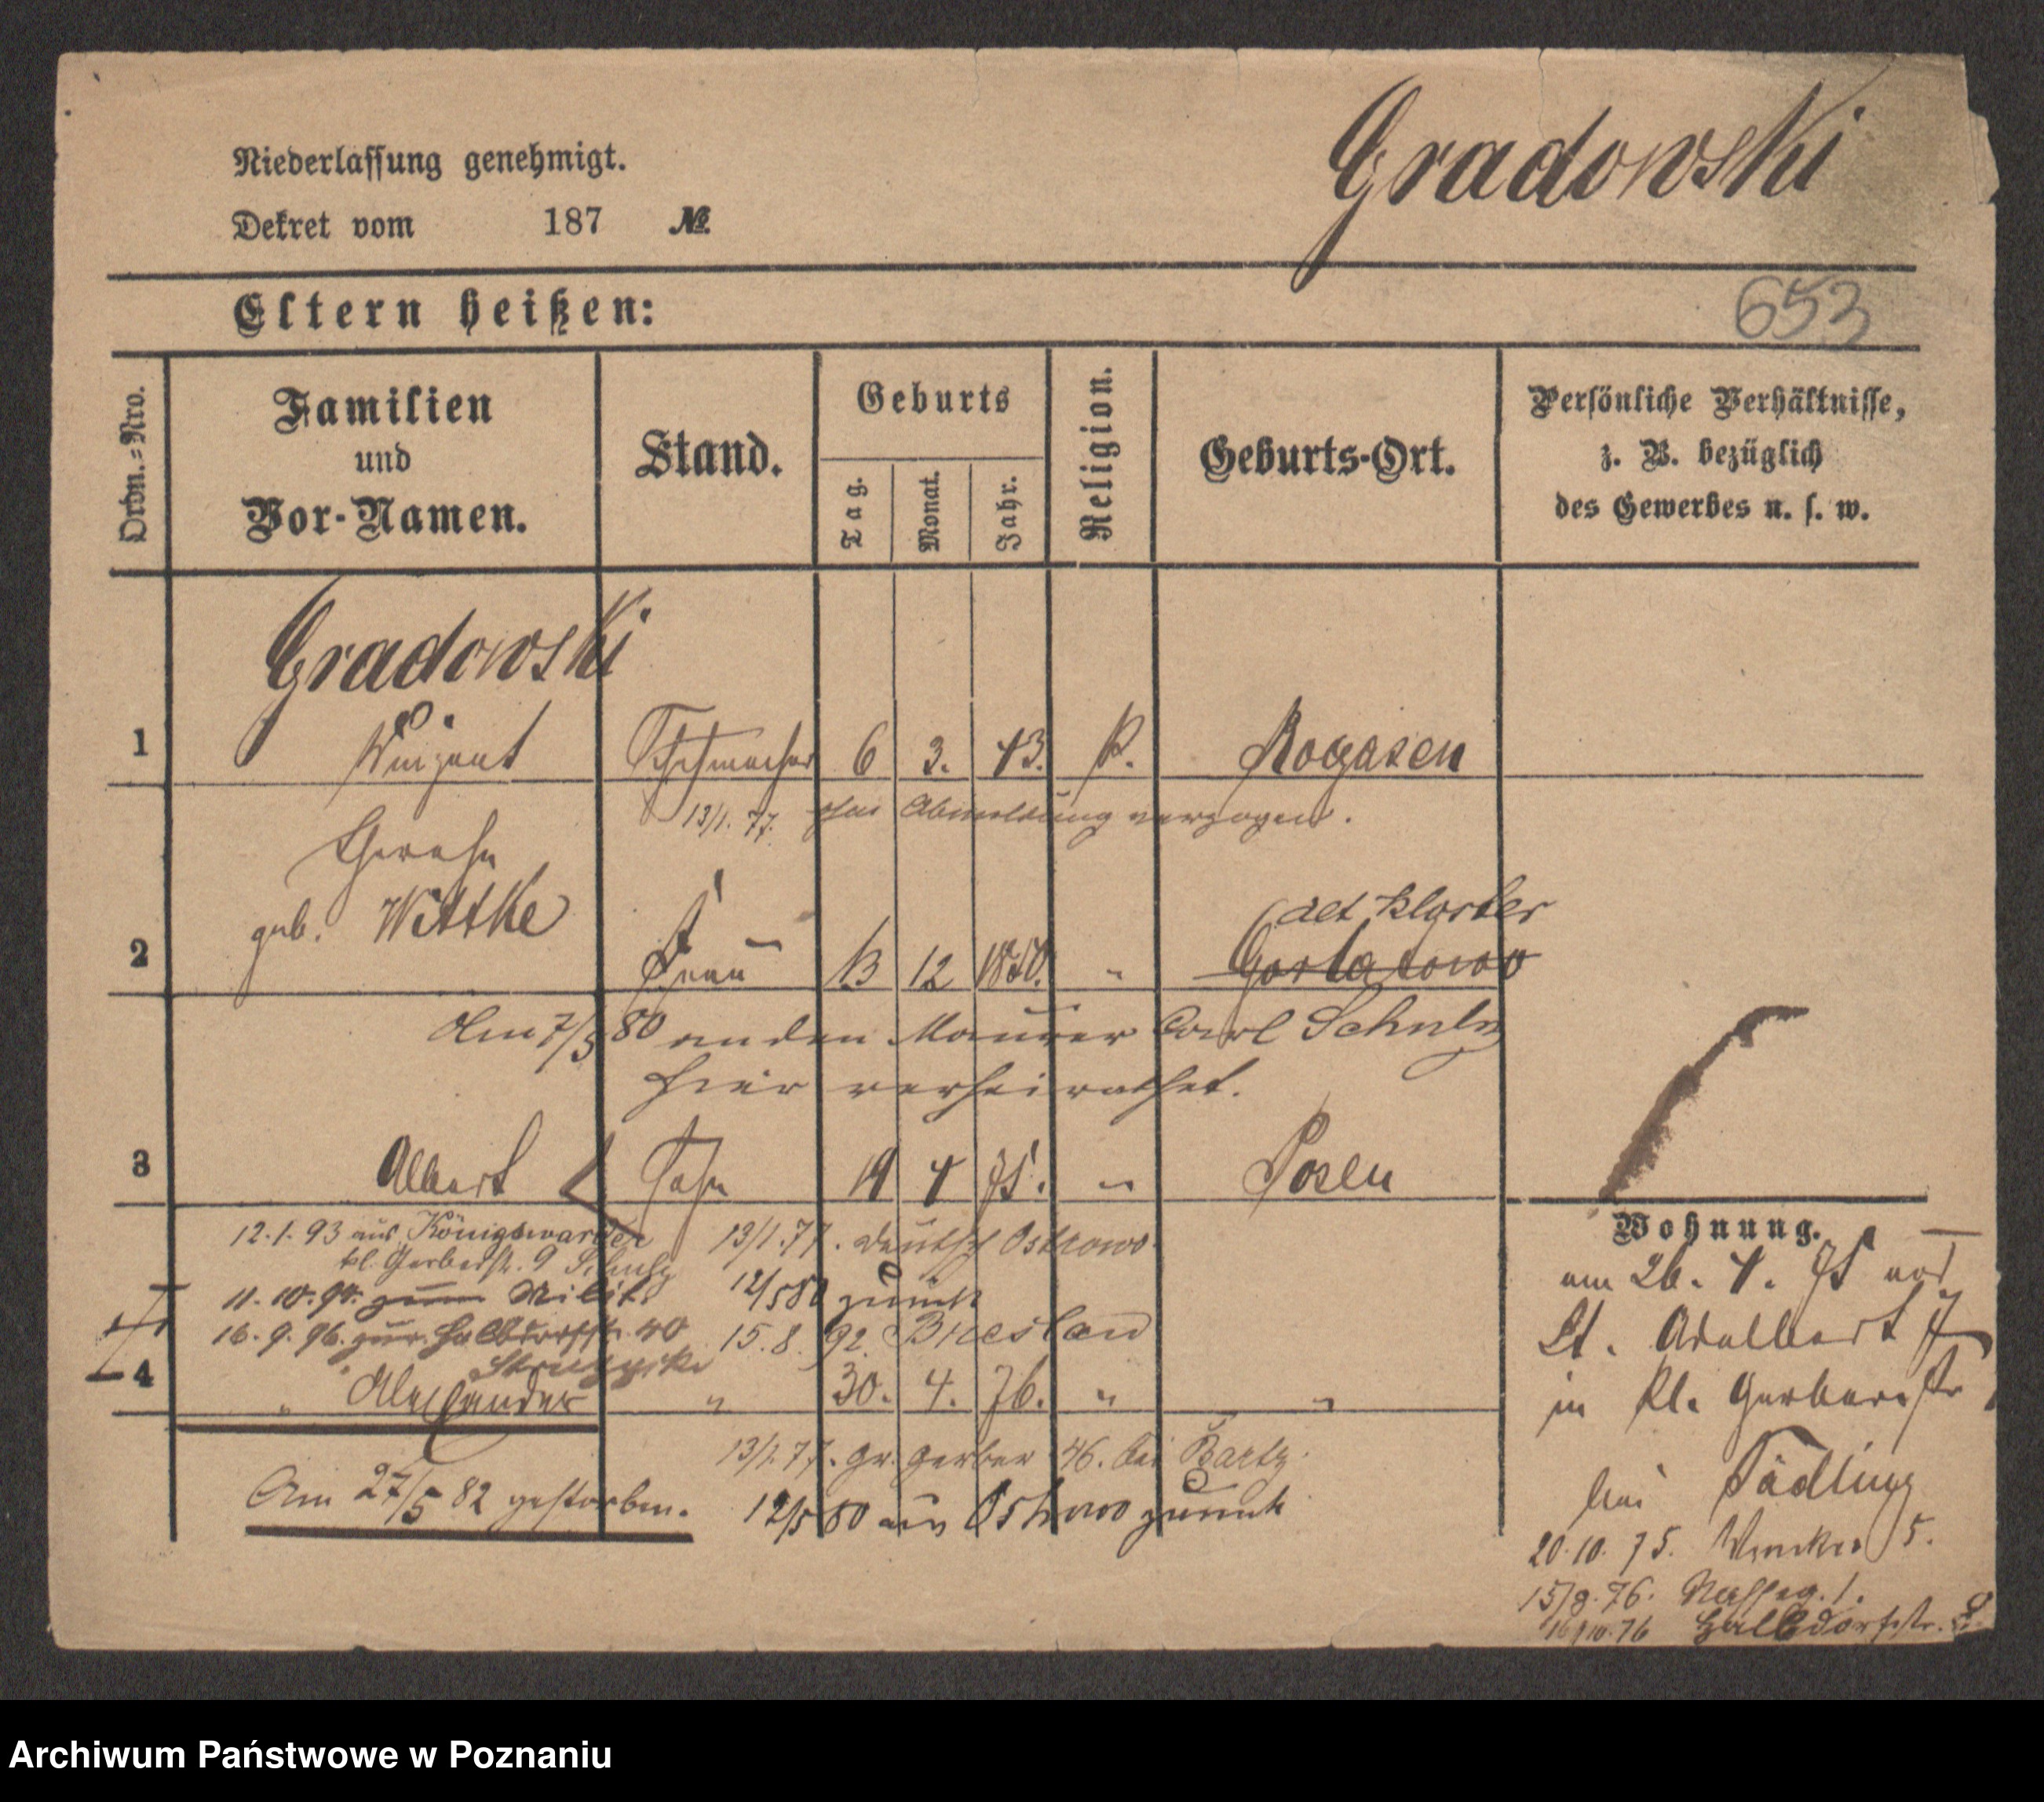 Gradowski
Niederlassung genehmigt.
Dekret vom 187 №
653
Eltern heißen:
Ordn.-Nro.
Familien
und
Vor-Namen.
Stand.
Geburts
Tag.
Monat.
Jahr.
Religion.
Geburts-Ort.
Persönliche Verhältnisse,
z. B. bezüglich
des Gewerbes u. s. w.
Gradowski
1 Vinzent 6 3. 43. K. Rogasen
13/1. 77. ohne Abmeldung verzogen.
Theresa
geb. Wittke
Alt Kloster
2 Frau 13 12 1850. " Gorta
Am 7/5 80 an den Maurer Carl Schulz
hier verheirathet.
3 Albert Sohn 19 4 75. " Posen
12.1.93 aus Königswarder 13/1.77. Deutsch Ostrowo.
kl. Gerberstr. 9 Schulz
11.10.94. zum Milit. 12/5 80 zurück
16.9.96. zur. Halbdorfstr. 40 15.8.92. Breslau
4 " Alexander " 30. 4. 76. " "
13/1.77. gr. Gerber 46. bei Bartz.
Am 27/5 82 gestorben. 12/5 80 aus Ostrowo zurück
Wohnung.
am 26. 4. 75 von
St. Adalbert
in kl. Gerberstr
bei Tädling
20.10.75. 5.
15/8.76. 1.
16/10.76 Halbdorfstr.
Archiwum Państwowe w Poznaniu